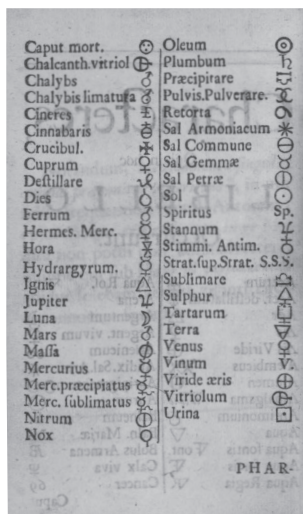 Caput mort.
Chalcanth.vitriol
Chalybs
Chalybis limatura
Cineres
Cinnabaris
Crucibul.
Cuprum
Destillare
Dies
Ferrum
Hermes. Merc.
Hora
Hydrargyrum.
Ignis
Jupiter
Luna
Mars
Massa
Mercurius
Merc.præcipiatus
Merc. sublimatus
Nitrum
Nox
Oleum
Plumbum
Præcipitare
Pulvis.Pulverare.
Retorta
Sal Armoniacum
Sal Commune
Sal Gemmæ
Sal Petræ
Sol
Spiritus Sp.
Stannum
Stimmi. Antim.
Strat.sup.Strat. S.S.S.
Sublimare
Sulphur
Tartarum
Terra
Venus
Vinum V.
Viride æris
Vitriolum
Urina
PHAR-